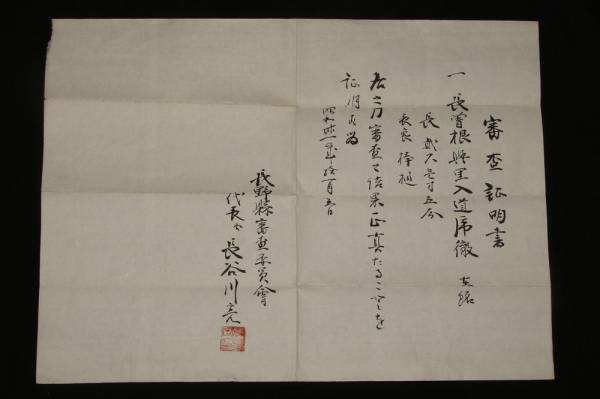 審査証明書
一 長曽根興里入道虎徹 在銘
長 貮尺壱寸五分
表裏棒樋
右之刀審査之結果正真たることを
証明す
昭和 一年 月 日
長野縣審査委員會
代表者 長谷川亮